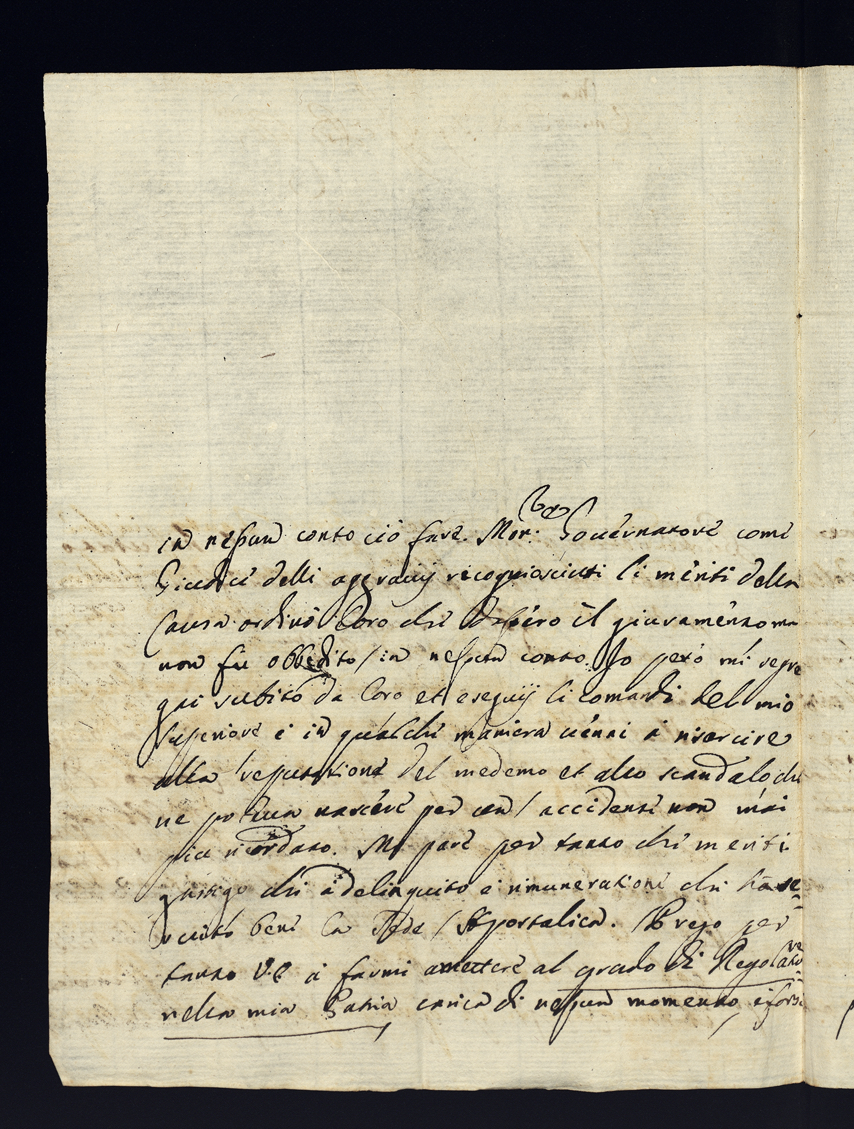 in nessun conto ciò fare. Mon: Governatore come
Giudice delli aggravij ricognosciuti li meriti della
Causa ordinò loro che dassero il giuramento ma
non fu obbedito in nessun conto. Io però mi segre
gai subito da loro et eseguij li comandi del mio
Superiore e in qualche maniera venni a risarcire
alla reputatione del medemo et allo scandalo che
ne poteva nascere per un accidente non mai
più ricordato. Mi pare per tanto che meriti
gastigo chi à delinquito e rimuneratione chi ha se
rvito bene la Sede Apostolica. Prego per
tanto V.E. a farmi amettere al grado di Regolatore
nella mia Patria carica di nessun momento, e forse